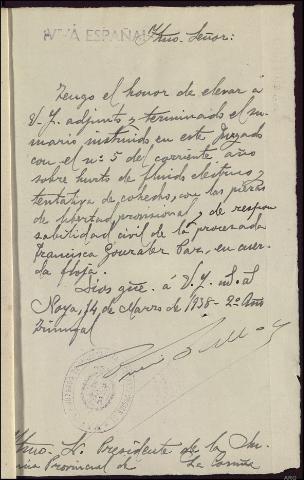 ¡VIVA ESPAÑA! Iltmo. Señor:
Tengo el honor de elevar á
V. I. adjunto y terminado el su-
mario instruido en este Juzgado
con el nº 5 del corriente año
sobre hurto de fluido eléctrico y
tentativa de cohecho, con las piezas
de libertad provisional y de respon
sabilidad civil de la procesada
Francisca González Paz, en cuer-
da floja.
Dios gue. á V. I. m. a.
Noya, 14 de Marzo de 1938 - 2º Año
Triunfal
Iltmo. Sr. Presidente de la Au-
cia Provincial de La Coruña